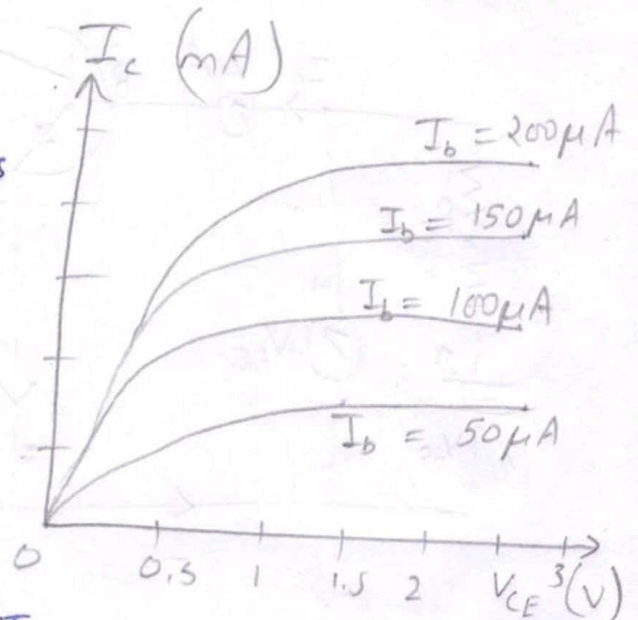 I_c (mA)
s
I_b = 200μA
I_b = 150μA
I_b = 100μA
I_b = 50μA
0 0.5 1 1.5 2 V_CE 3 (V)